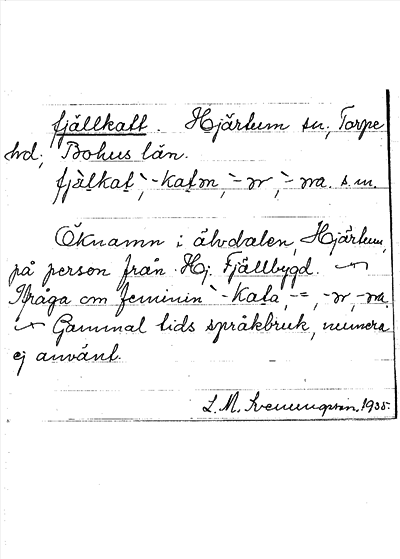 fjällkatt. Hjärtum sn, Torpe
hd, Bohus län.
fjälkat, -katən, -ər, -əra. s.m.
Öknamn i älvdalen, Hjärtum,
på person från Hj. Fjällbygd. —
Ifråga om feminin -kata, -=, -ər, -əra.
— Gammal tids språkbruk, numera
ej använt.
L. M. Svenungsson. 1935.